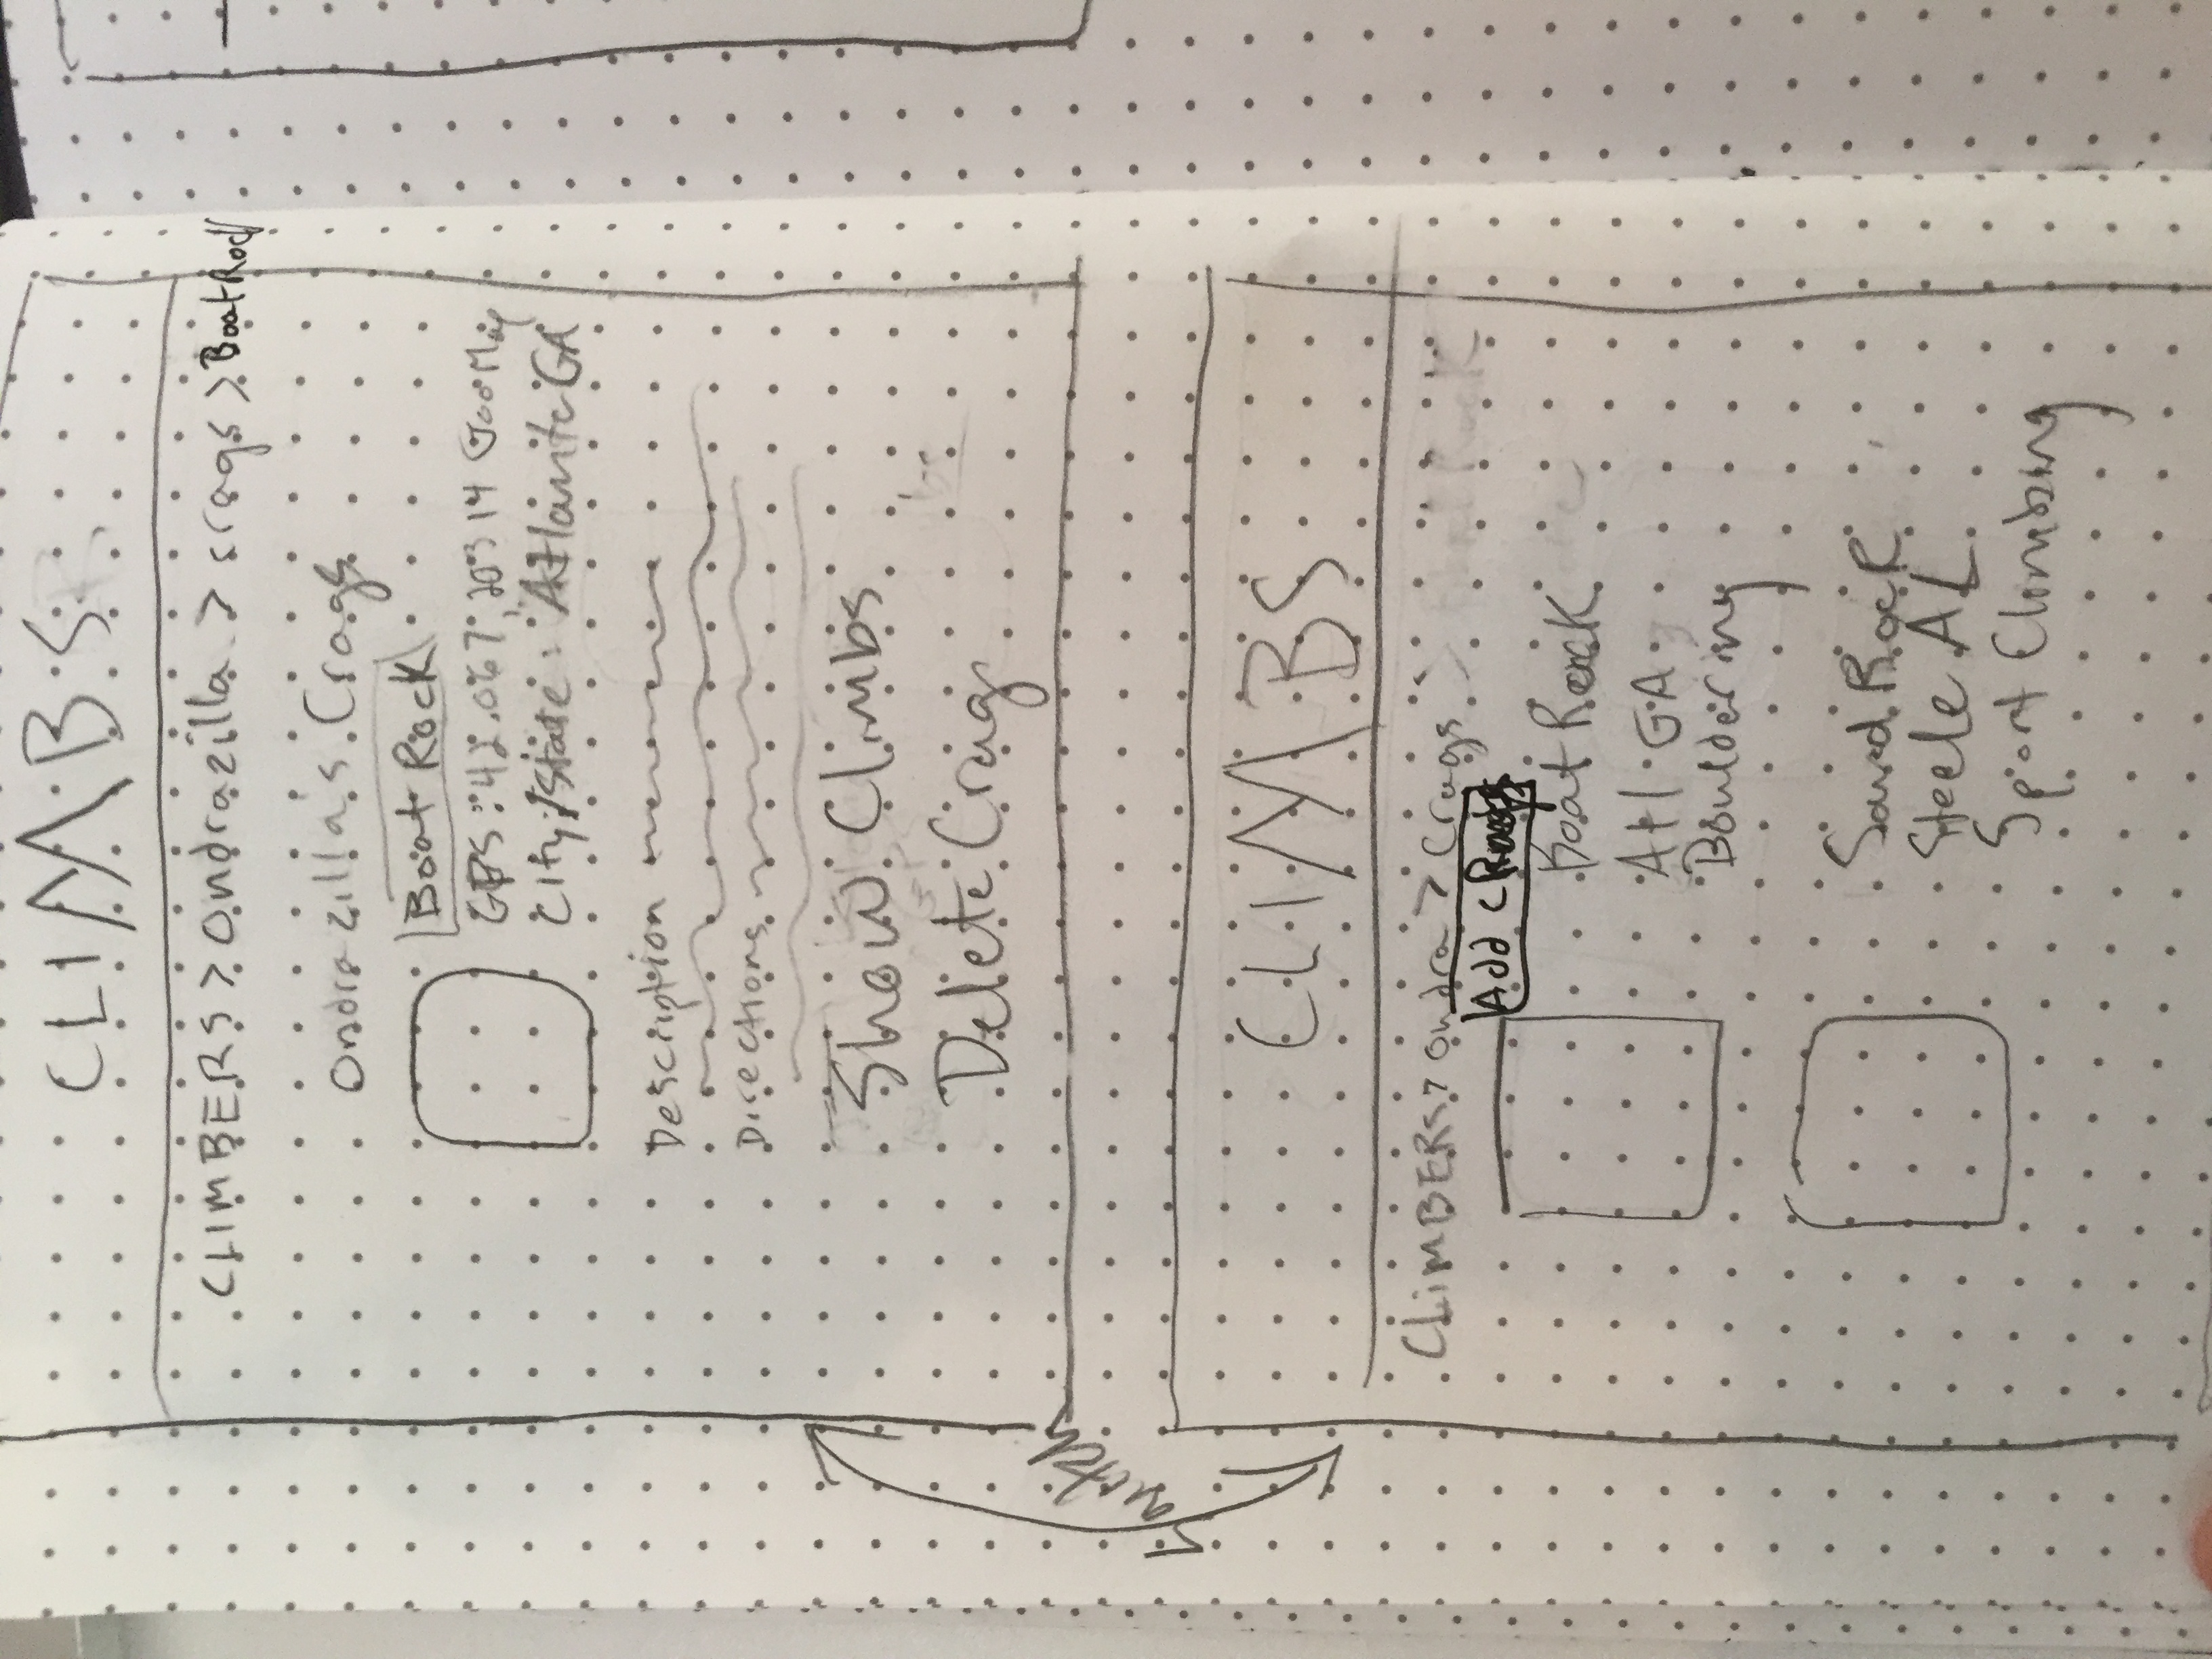 CLIMBS
CLIMBERS > Ondrazilla > crags > Boat Rock
Ondrazilla's Crags
Boat Rock
GPS: 42.067, 20314 GooMap
City/State: Atlanta GA
Description
Directions
Show Climbs
Delete Crag
Switch
CLIMBS
CLIMBERS > Ondra > Crags
Add Crag
Boat Rock
Atl GA
Bouldering
Sand Rock
Steele AL
Sport Climbing